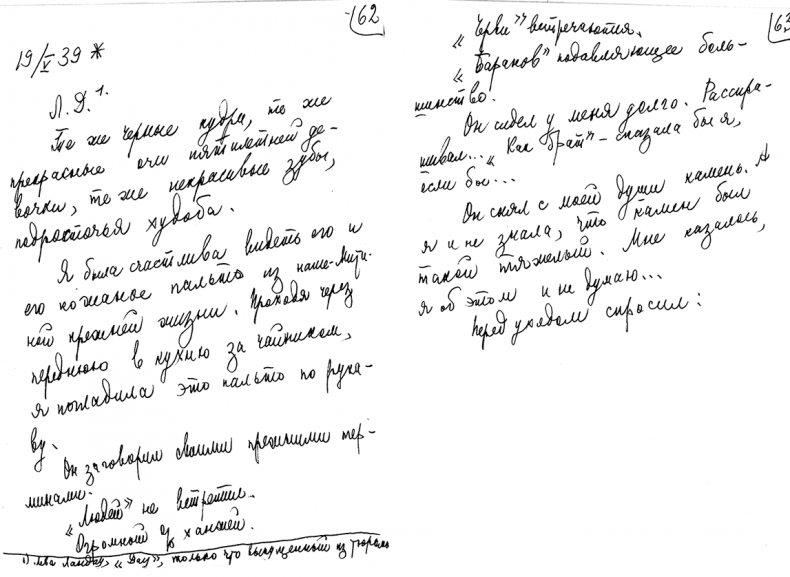 162
19/V 39 *
Л. Д. 1.
Те же черные кудри, те же
прекрасные очи пятилетней де-
вочки, те же некрасивые зубы,
подросточья худоба.
Я была счастлива видеть его и
его кожаное пальто из наше-Мити-
ной прежней жизни. Проходя через
переднюю в кухню за чайником,
я погладила это пальто по рука-
ву.
Он заговорил своими прежними тер-
минами.
«Людей» не встретил.
Огромный % ханжей.
1) Лева Ландау, «Дау», только что выпущенный из тюрьмы
163
«Черви» встречаются.
«Баранов» подавляющее боль-
шинство.
Он сидел у меня долго. Расспра-
шивал... „Как брат" – сказала бы я,
если бы...
Он снял с моей души камень. А
я и не знала, что камень был
такой тяжелый. Мне казалось,
я об этом и не думаю...
Перед уходом спросил: